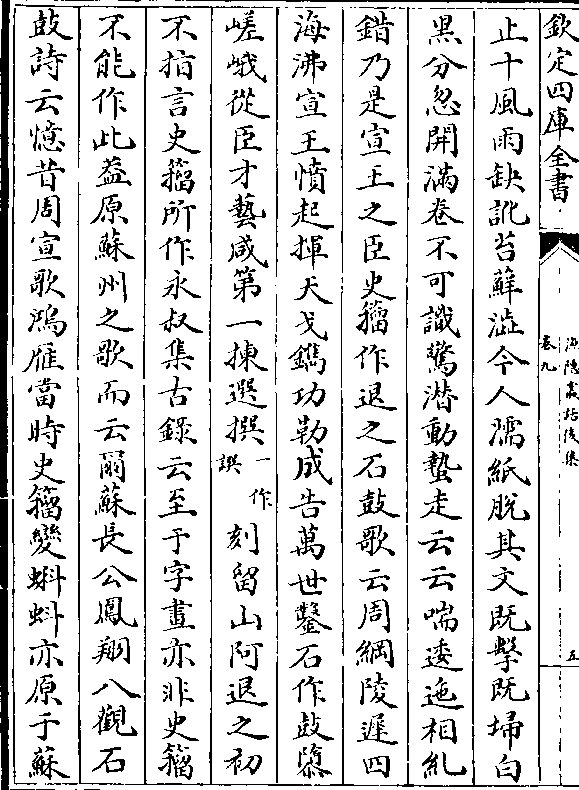 欽定四庫全書
漁隱叢話後集
卷九
五
止十風雨缺訛苔蘚澁今人濡紙脫其文既擊既掃白
黒分忽開滿卷不可識驚潛動蟄走云云喘逶迤相糺
錯乃是宣王之臣史籀作退之石鼓歌云周綱陵遲四
海沸宣王憤起揮天戈鐫功勒成告萬世鑿石作鼓隳
嵯峨從臣才藝咸第一揀選撰一作譔刻留山阿退之初
不指言史籀所作永叔集古録云至于字畫亦非史籀
不能作此葢原蘇州之歌而云爾蘇長公鳳翔八觀石
鼓詩云憶昔周宣歌鴻雁當時史籀變蝌蚪亦原于蘇